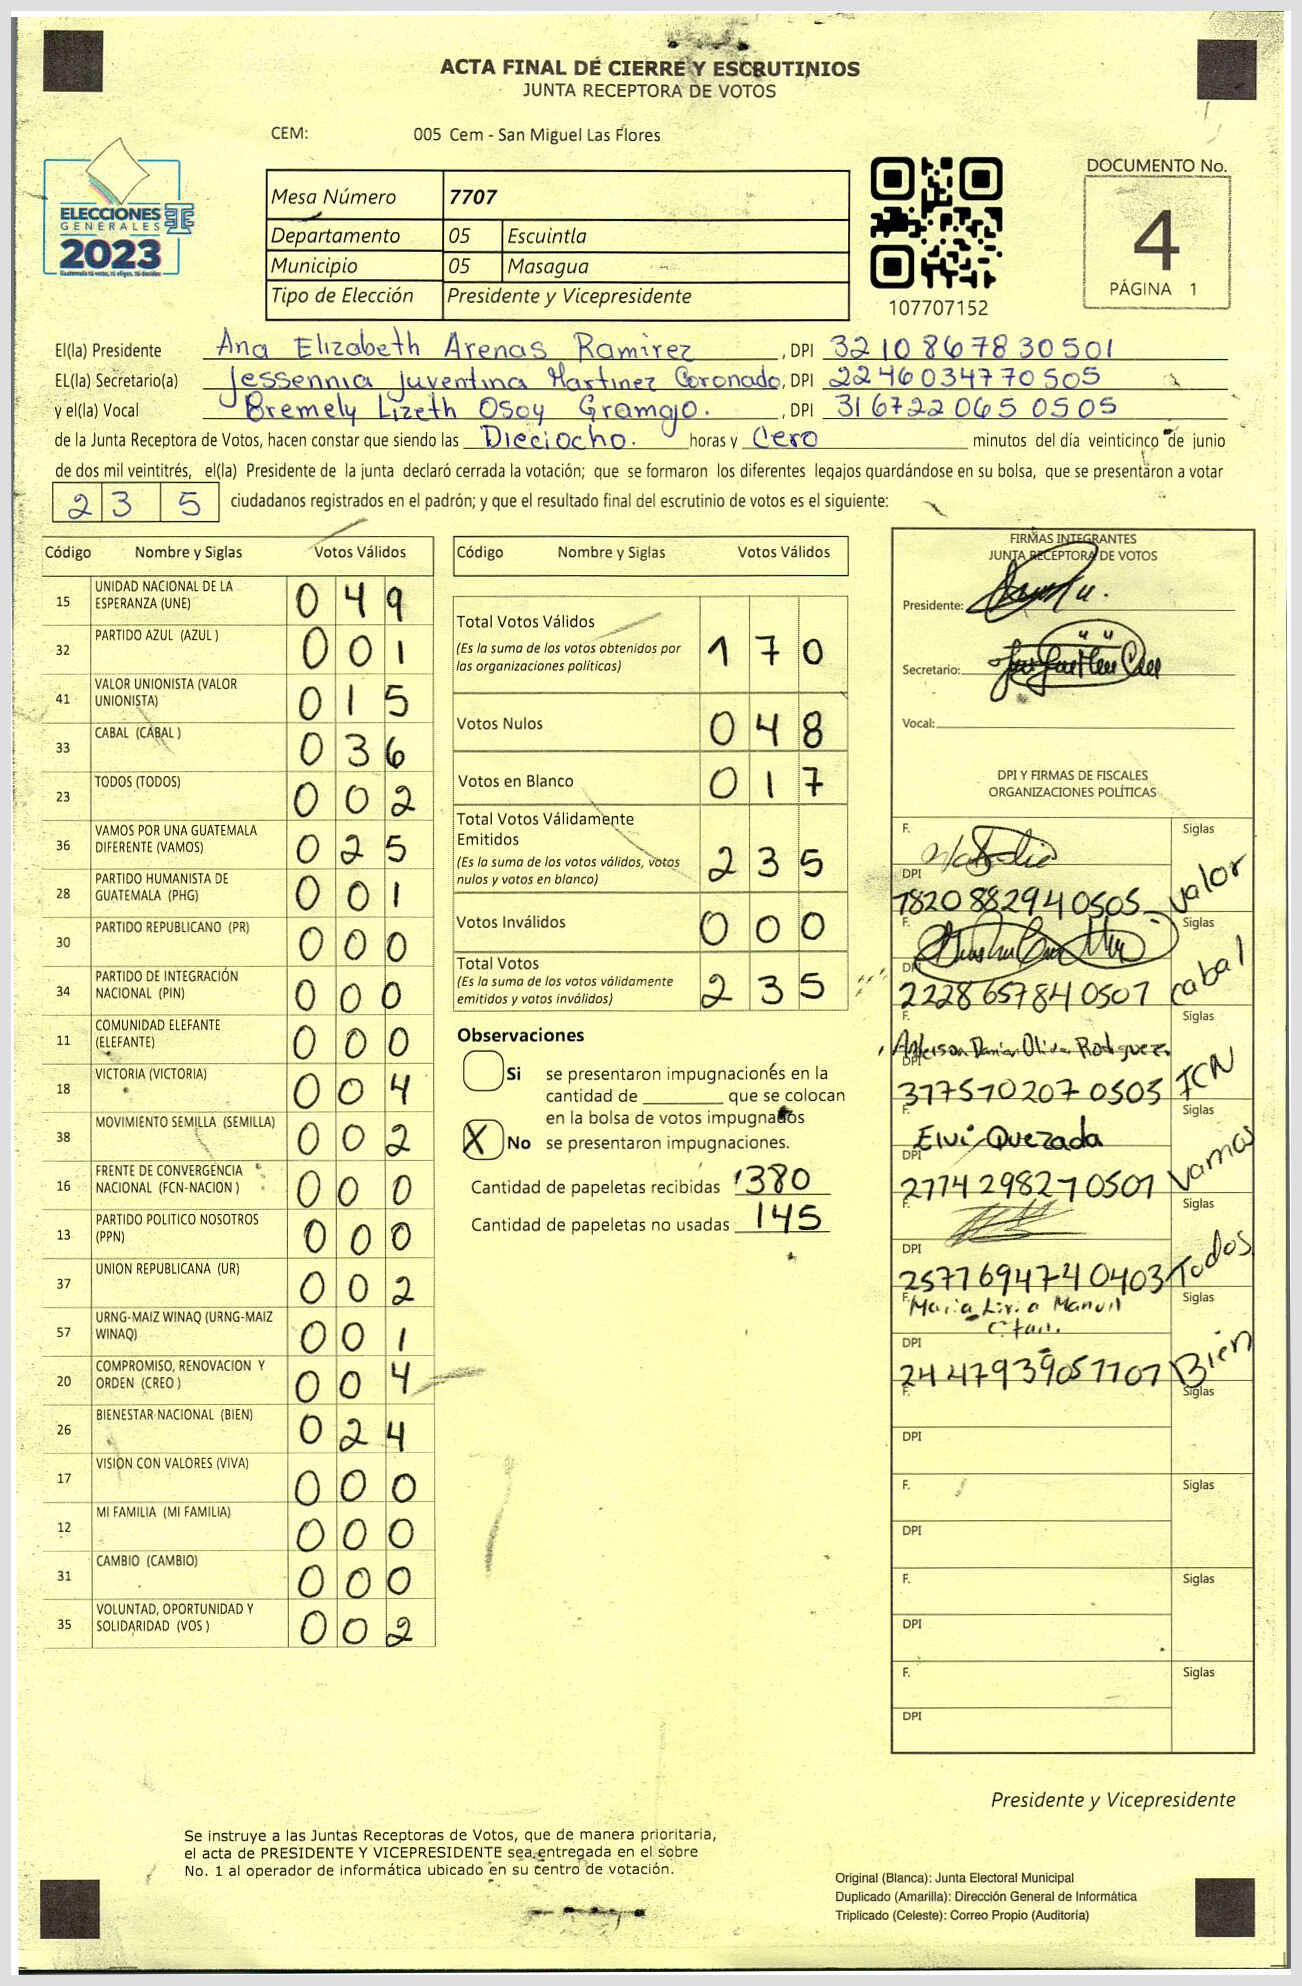 ACTA FINAL DE CIERRE Y ESCRUTINIOS
JUNTA RECEPTORA DE VOTOS
CEM: 005 Cem - San Miguel Las Flores
DOCUMENTO No.
4
PÁGINA 1
ELECCIONES
GENERALES
2023
Mesa Número 7707
Departamento 05 Escuintla
Municipio 05 Masagua
Tipo de Elección Presidente y Vicepresidente
107707152
El(la) Presidente Ana Elizabeth Arenas Ramirez, DPI 3210867830501
EL(la) Secretario(a) Jessennia Juventina Martinez Coronado, DPI 2246034770505
y el(la) Vocal Bremely Lizeth Osoy Gramajo., DPI 3167220650505
de la Junta Receptora de Votos, hacen constar que siendo las Dieciocho. horas y Cero minutos del día veinticinco de junio
de dos mil veintitrés, el(la) Presidente de la junta declaró cerrada la votación; que se formaron los diferentes legajos guardándose en su bolsa, que se presentaron a votar
2 3 5 ciudadanos registrados en el padrón; y que el resultado final del escrutinio de votos es el siguiente:
Código Nombre y Siglas Votos Válidos
15 UNIDAD NACIONAL DE LA ESPERANZA (UNE) 0 4 9
32 PARTIDO AZUL (AZUL ) 0 0 1
41 VALOR UNIONISTA (VALOR UNIONISTA) 0 1 5
33 CABAL (CABAL ) 0 3 6
23 TODOS (TODOS) 0 0 2
36 VAMOS POR UNA GUATEMALA DIFERENTE (VAMOS) 0 2 5
28 PARTIDO HUMANISTA DE GUATEMALA (PHG) 0 0 1
30 PARTIDO REPUBLICANO (PR) 0 0 0
34 PARTIDO DE INTEGRACIÓN NACIONAL (PIN) 0 0 0
11 COMUNIDAD ELEFANTE (ELEFANTE) 0 0 0
18 VICTORIA (VICTORIA) 0 0 4
38 MOVIMIENTO SEMILLA (SEMILLA) 0 0 2
16 FRENTE DE CONVERGENCIA NACIONAL (FCN-NACION ) 0 0 0
13 PARTIDO POLITICO NOSOTROS (PPN) 0 0 0
37 UNION REPUBLICANA (UR) 0 0 2
57 URNG-MAIZ WINAQ (URNG-MAIZ WINAQ) 0 0 1
20 COMPROMISO, RENOVACION Y ORDEN (CREO ) 0 0 4
26 BIENESTAR NACIONAL (BIEN) 0 2 4
17 VISION CON VALORES (VIVA) 0 0 0
12 MI FAMILIA (MI FAMILIA) 0 0 0
31 CAMBIO (CAMBIO) 0 0 0
35 VOLUNTAD, OPORTUNIDAD Y SOLIDARIDAD (VOS ) 0 0 2
Código Nombre y Siglas Votos Válidos
Total Votos Válidos 1 7 0
(Es la suma de los votos obtenidos por
las organizaciones politicas)
Votos Nulos 0 4 8
Votos en Blanco 0 1 7
Total Votos Válidamente
Emitidos 2 3 5
(Es la suma de los votos válidos, votos
nulos y votos en blanco)
Votos Inválidos 0 0 0
Total Votos 2 3 5
(Es la suma de los votos válidamente
emitidos y votos inválidos)
Observaciones
Si se presentaron impugnaciones en la
cantidad de ________ que se colocan
en la bolsa de votos impugnados
X No se presentaron impugnaciones.
Cantidad de papeletas recibidas 380
Cantidad de papeletas no usadas 145
FIRMAS INTEGRANTES
JUNTA RECEPTORA DE VOTOS
Presidente:
Secretario:
Vocal:
DPI Y FIRMAS DE FISCALES
ORGANIZACIONES POLÍTICAS
F. Siglas
DPI 7820882940505 Valor
F. Siglas
DPI 2228657840507 Cabal
F. Anderson Damian Oliva Rodriguez Siglas
DPI 3775702070505 FCN
F. Elvi Quezada Siglas
DPI 2774298270507 Vamos
F. Siglas
DPI 2577694740403 Todos
F. Maria Manuel Siglas
DPI 2447939051707 Bien
F. Siglas
DPI
F. Siglas
DPI
F. Siglas
DPI
F. Siglas
DPI
Presidente y Vicepresidente
Se instruye a las Juntas Receptoras de Votos, que de manera prioritaria,
el acta de PRESIDENTE Y VICEPRESIDENTE sea entregada en el sobre
No. 1 al operador de informática ubicado en su centro de votación.
Original (Blanca): Junta Electoral Municipal
Duplicado (Amarilla): Dirección General de Informática
Triplicado (Celeste): Correo Propio (Auditoría)